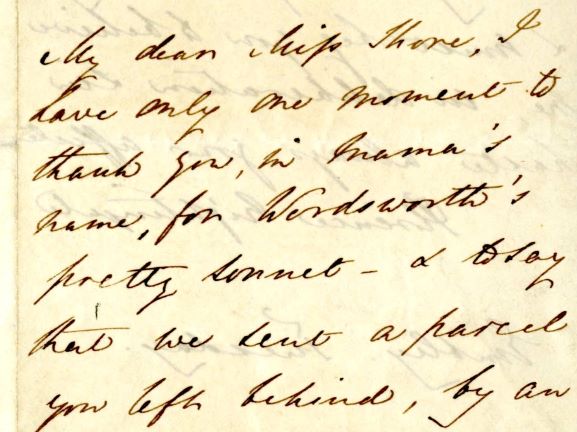 My dear Miss Shore, I
have only one moment to
thank you, in Mama's
name, for Wordsworth's
pretty sonnet - & to say
that we sent a parcel
you left behind, by an